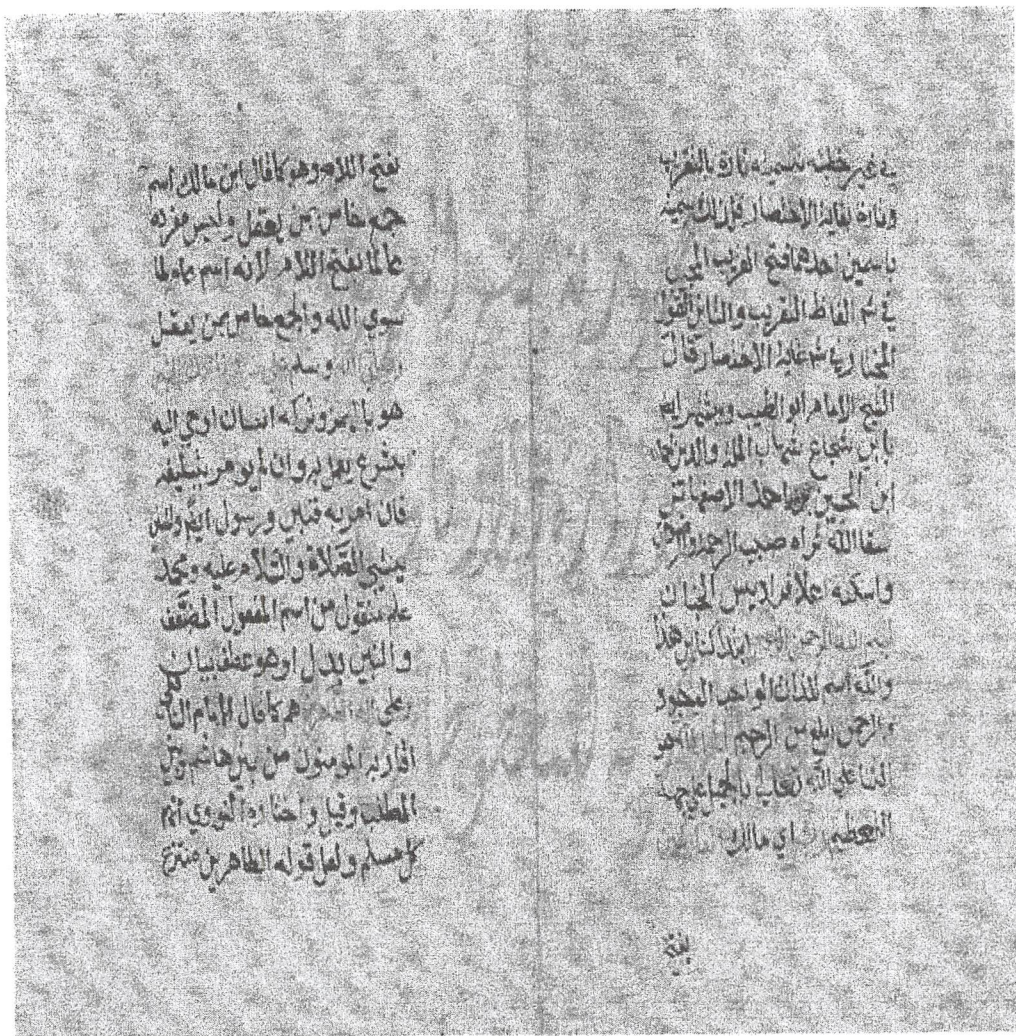 في غير خطبه تسميه تارة بالتقريب
وتارة بغاية الاختصار فلذلك سميته
باسمين احدهما فتح القريب المجيب
في شرح الفاظ التقريب والثاني القول
المختار في شرح غاية الاختصار قال
الشيخ الامام ابو الطيب ويشتهر ايضا
بابي شجاع شهاب الملة والدين احمد
ابن الحسين بن احمد الاصفهاني
سقا الله ثراه صبيب الرحمة والرضوان
واسكنه اعلا فراديس الجنان
بسم الله الرحمن الرحيم ابتدئ كتابي هذا
والله اسم للذات الواجب الوجود
والرحمن ابلغ من الرحيم الحمد لله هو
الثنا على الله تعالى بالجميل على جهة
التعظيم رب اي مالك العالمين
بفتح
بفتح اللام وهو كما قال ابن مالك اسم
جمع خاص بمن يعقل وليس مفرده
عالما بفتح اللام لانه اسم عام لما
سوي الله والجمع خاص بمن يعقل
وصلى الله وسلم
هو بالهمز وتركه انسان اوحي اليه
بشرع يعمل به وان لم يومر بتبليغه
فان امر به فنبي ورسول ايضا والمعنى
ينشي الصلاة والسلام عليه ومحمد
علم منقول من اسم المفعول المضعف
والنبي بدل او هو عطف بيان
وعلى اله هم كما قال الامام الشافعي
اقاربه المومنون من بني هاشم وبني
المطلب وقيل واختاره النووي انهم
كل مسلم ولعل قوله الطاهرين منتزع